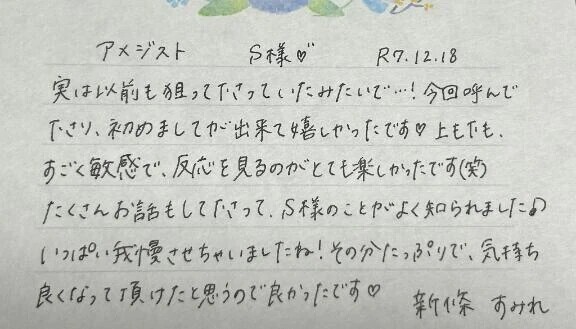 アメジスト S様♡ R7.12.18
実は以前も狙って下さっていたみたいで…!今回呼んで
下さり、初めましてが出来て嬉しかったです♡上も下も、
すごく敏感で、反応を見るのがとても楽しかったです(笑)
たくさんお話もして下さって、S様のことがよく知られました♫
いっぱい我慢させちゃいましたね!その分たっぷりで、気持ち
良くなって頂けたと思うので良かったです♡ 新條 すみれ